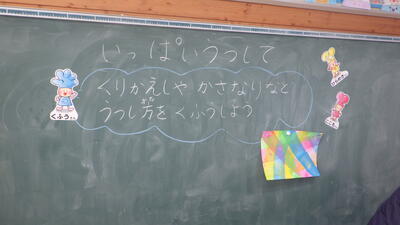 いっぱいうつして
くりかえしや かさなりなど
うつし方を くふうしよう
くふうさん